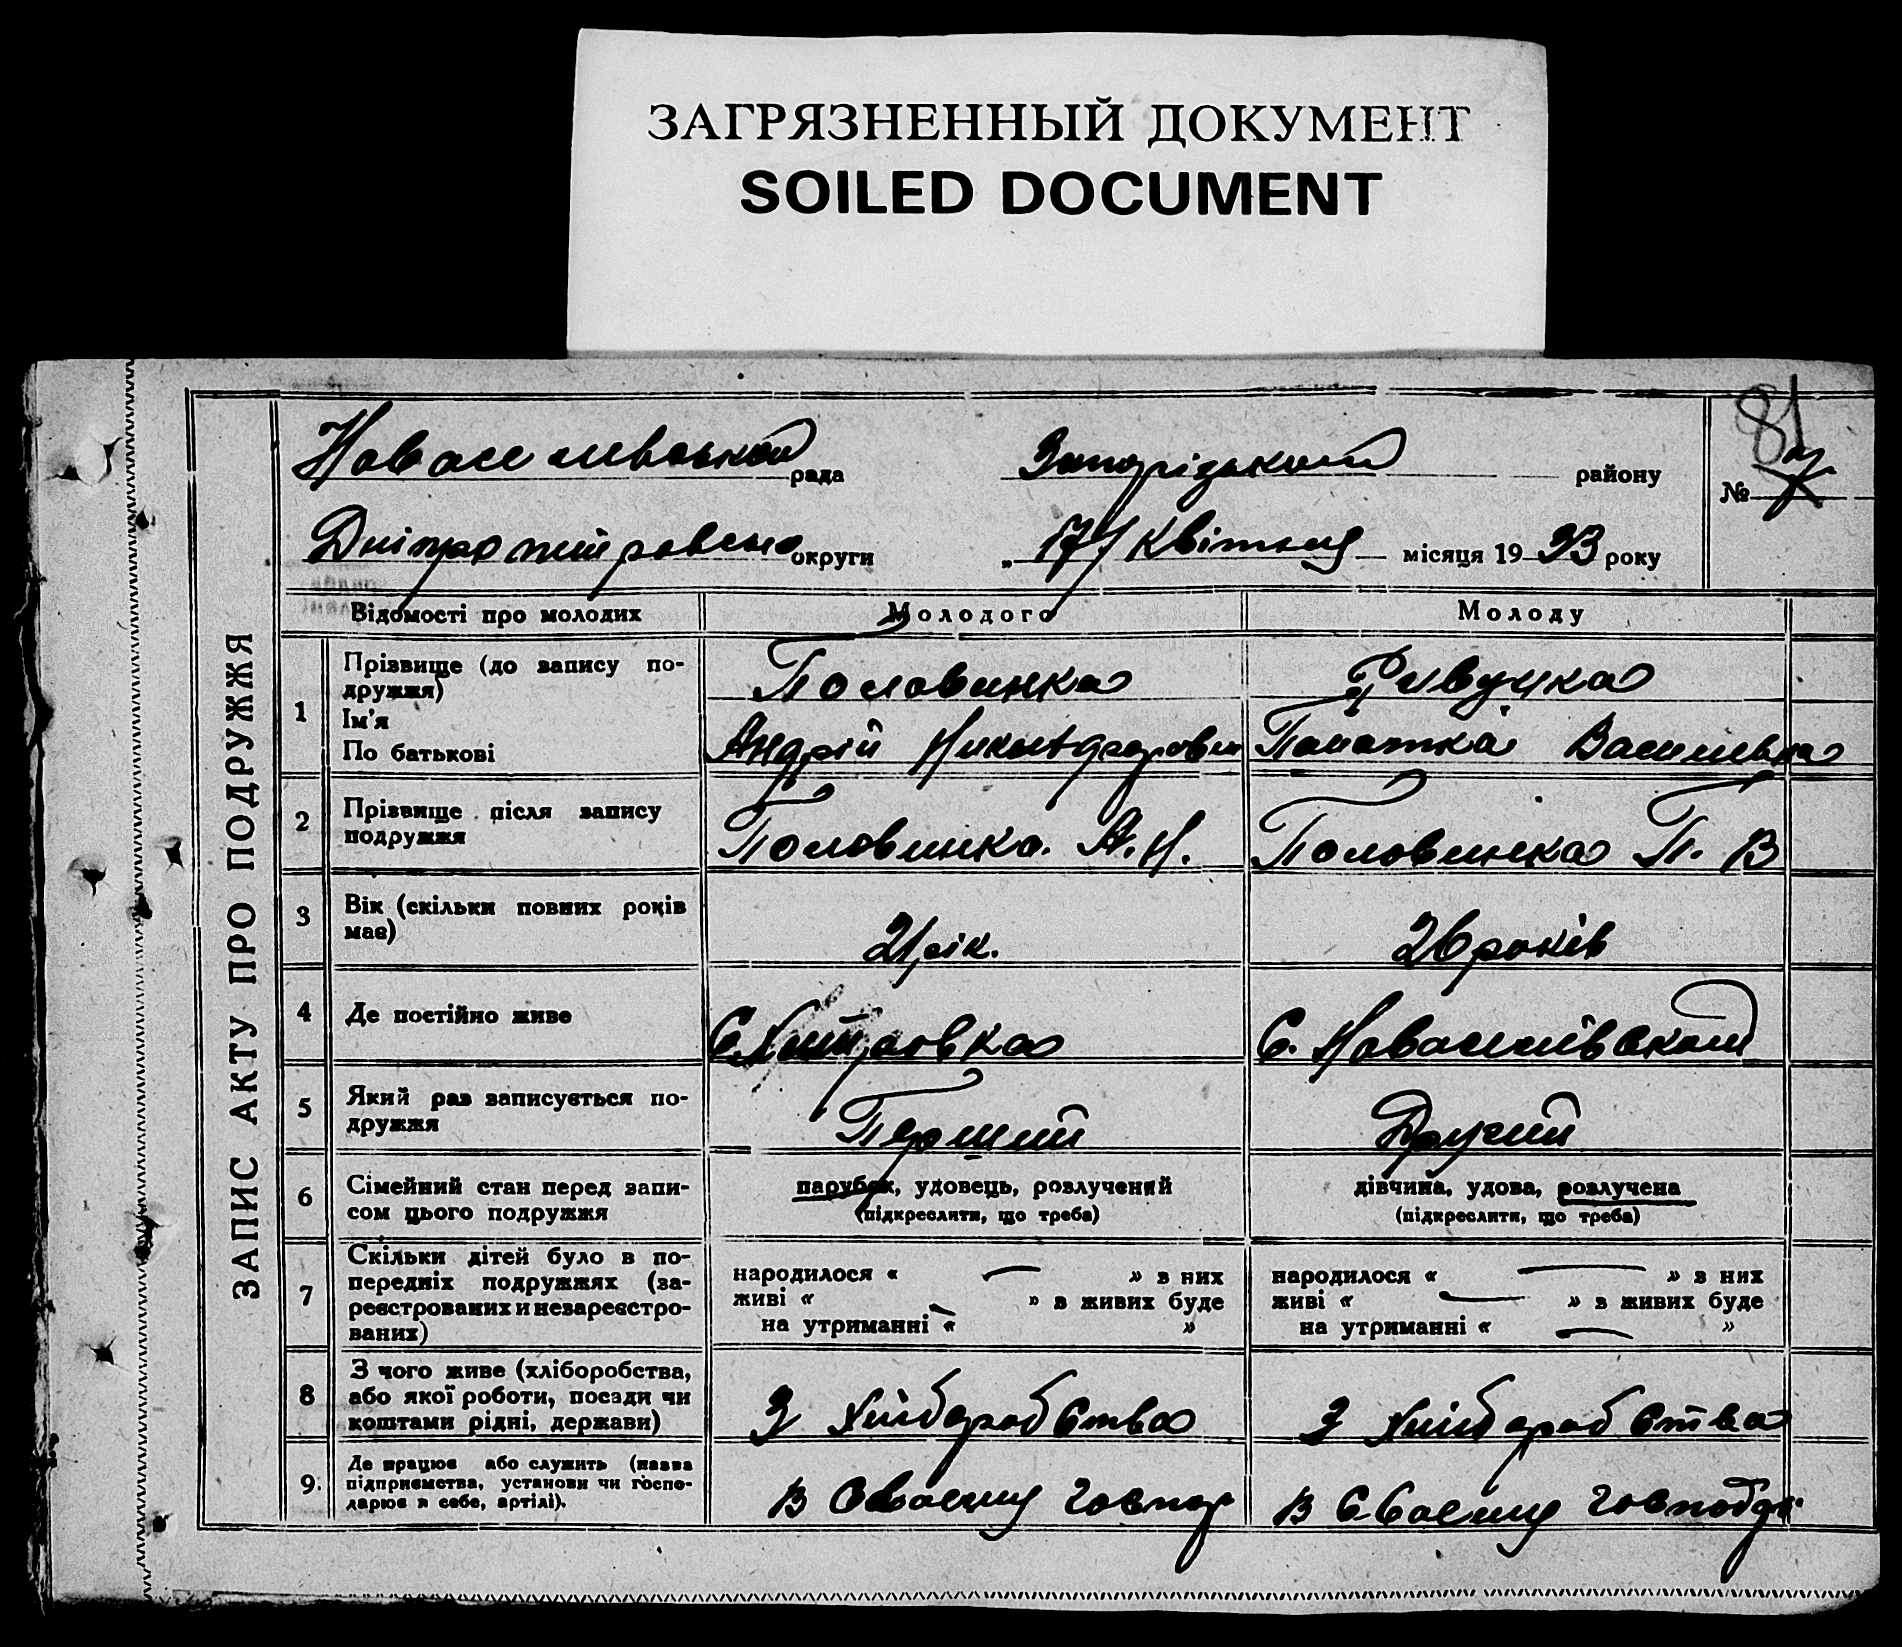 ЗАГРЯЗНЕННЫЙ ДОКУМЕНТ
SOILED DOCUMENT
81
рада Запорізький району № 7
округи „ 17/ Квітня місяця 19 33 року
ЗАПИС АКТУ ПРО ПОДРУЖЖЯ
Відомості про молодих Молодого Молоду
1 Прізвище (до запису по-
дружжя) Половинка
Ім'я
По батькові Андрій Васильевна
2 Прізвище після запису
подружжя Половинка. А. Н. Половинка П. В
3 Вік (скільки повних років
має) 21 рік. 26 років
4 Де постійно живе С. С.
5 Який раз записується по-
дружжя Перший Другий
6 Сімейний стан перед запи-
сом цього подружжя
парубок, удовець, розлучений
(підкреслити, що треба)
дівчина, удова, розлучена
(підкреслити, що треба)
7 Скільки дітей було в по-
передніх подружжях (за-
реєстрованих и незареєстро-
ваних)
народилося « — » в них
живі « » в живих буде
на утриманні « — »
народилося « — » в них
живі « — » в живих буде
на утриманні « — »
8 З чого живе (хліборобства,
або якої роботи, посади чи
коштами рідні, держави)
З Хліборобства З Хліборобства
9. Де працює або служить (назва
підприємства, установи чи госпо-
дарює в себе, артілі).
В Своєму Госпор В Своєму